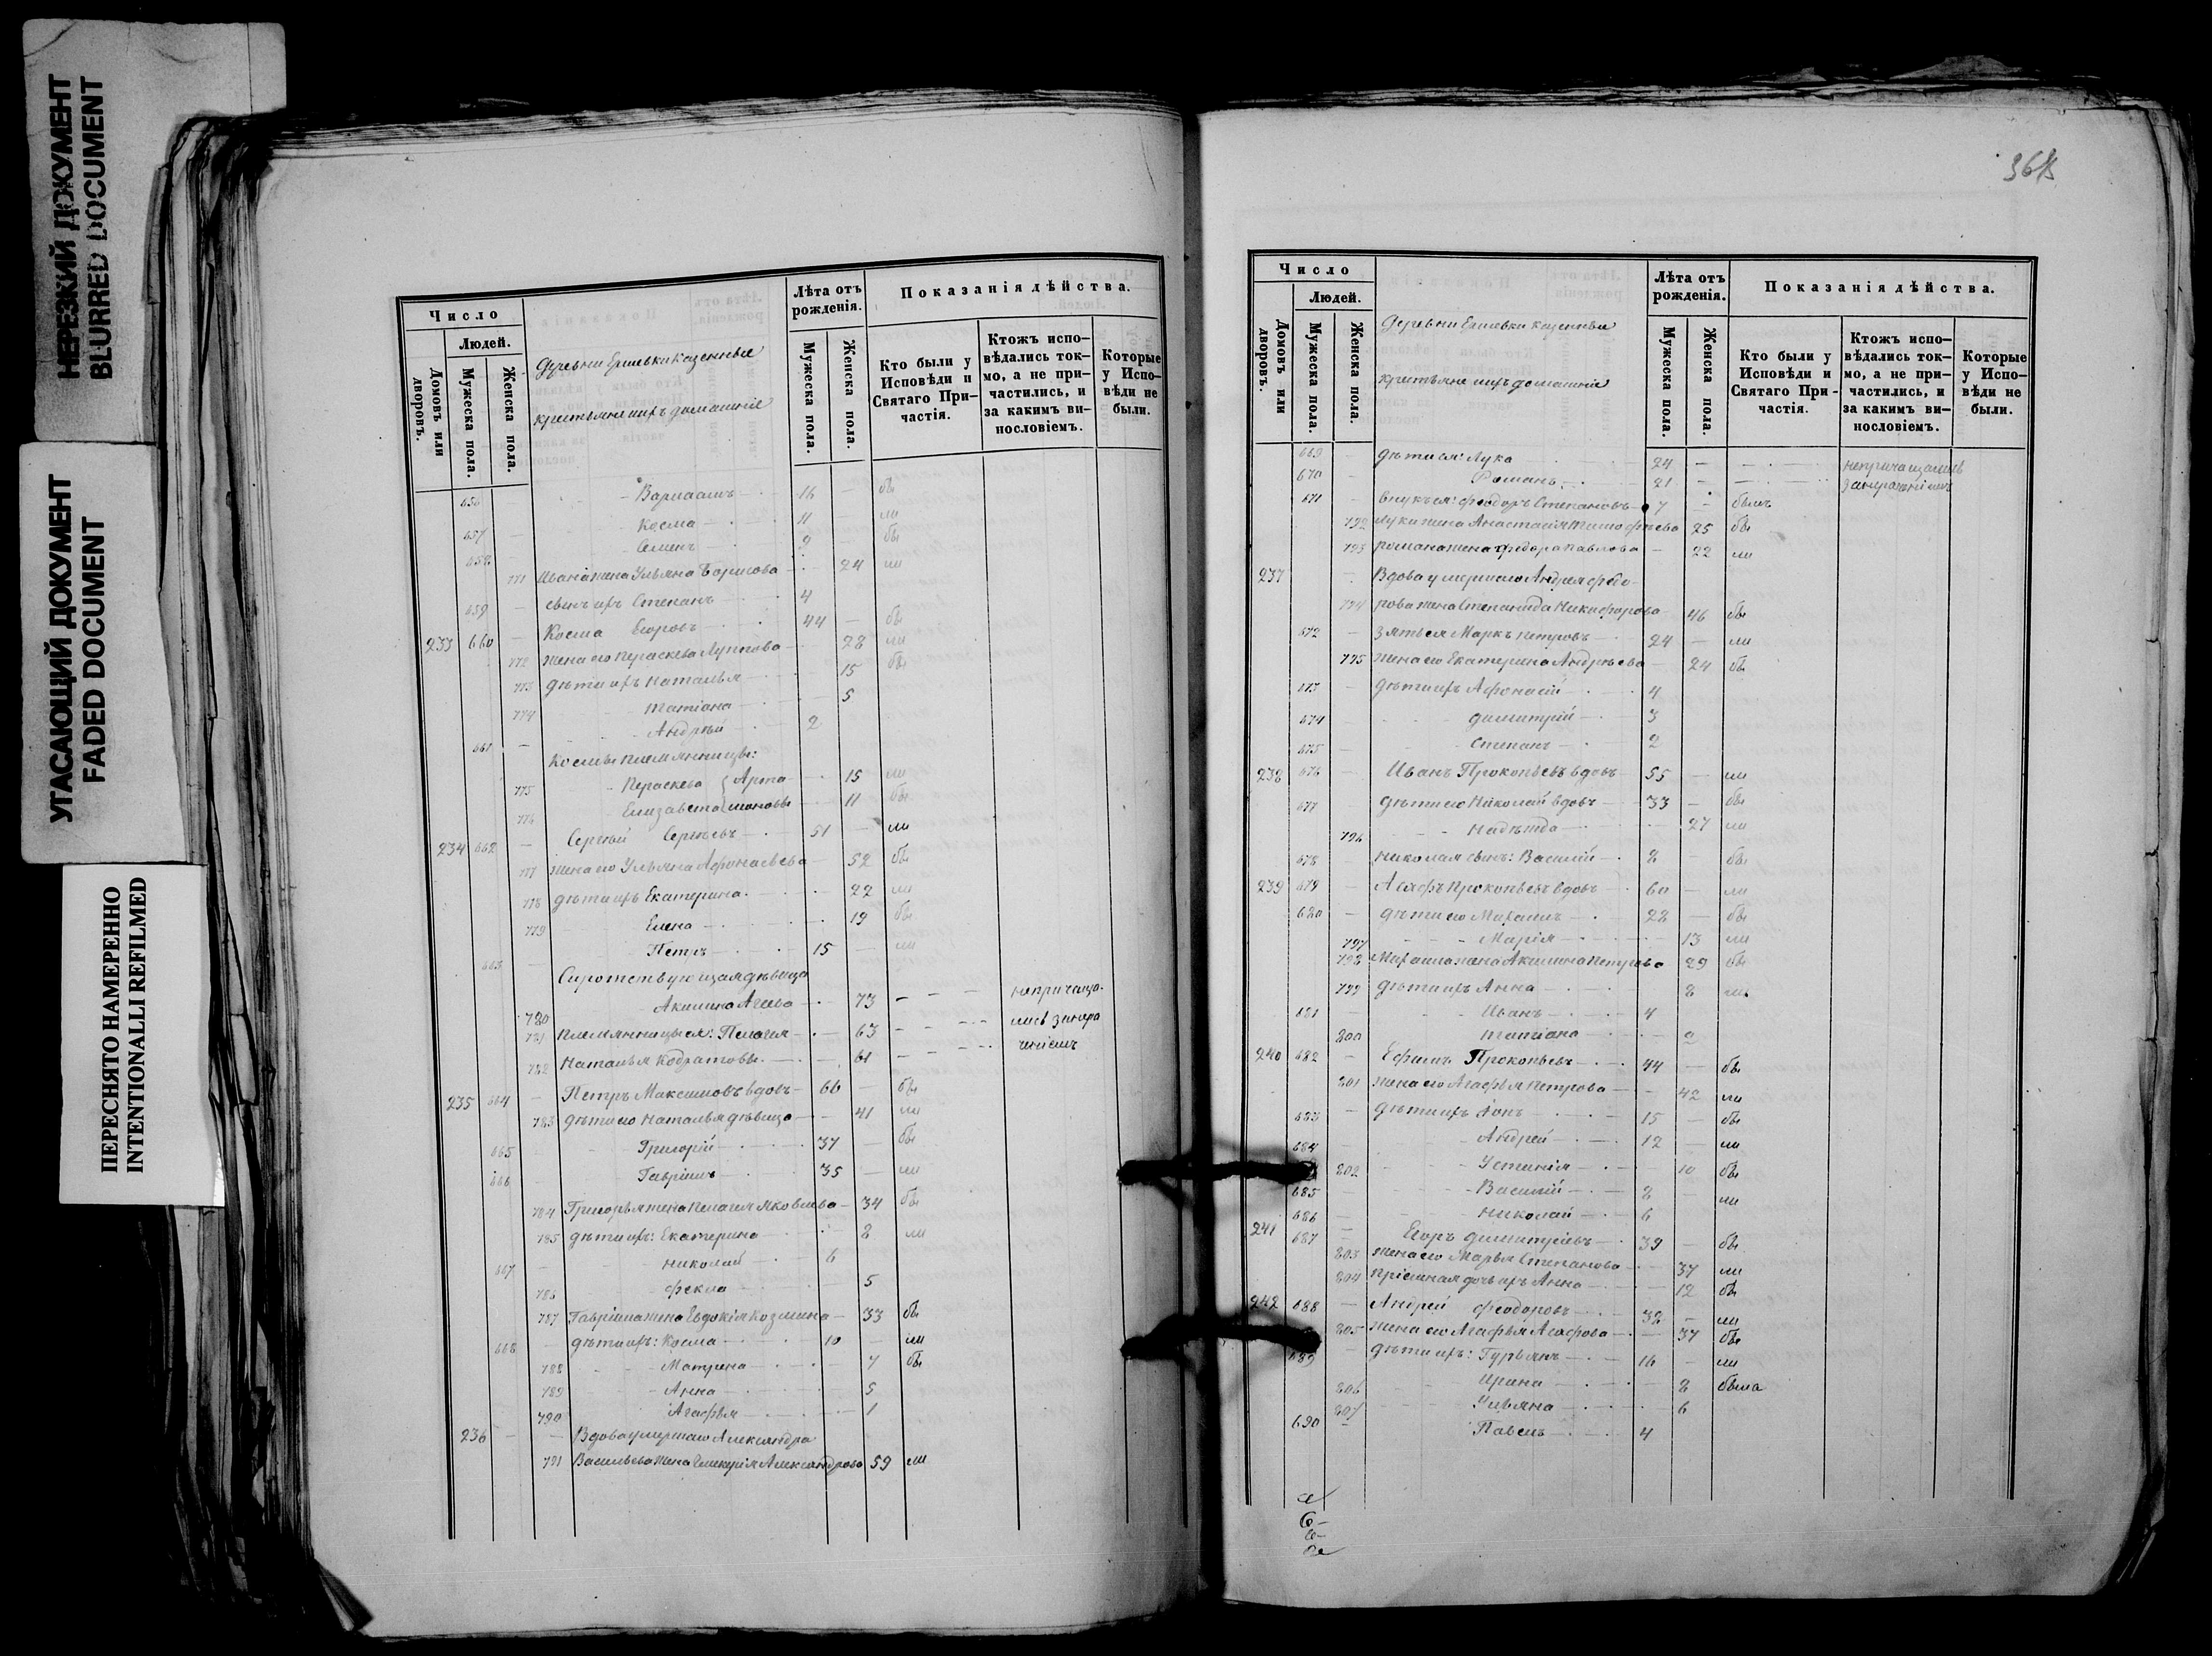 НЕРЕЗКИЙ ДОКУМЕНТ
BLURRED DOCUMENT
УГАСАЮЩИЙ ДОКУМЕНТ
FADED DOCUMENT
ПЕРЕСНЯТО НАМЕРЕННО
INTENTIONALLI REFILMED
Число
Людей.
Домовъ или дворовъ.
Мужеска пола.
Женска пола.
Деревни Ершевки казенные
крестьяне ихъ домашніе
Лѣта отъ рожденія.
Мужеска пола.
Женска пола.
Показанія дѣйства.
Кто были у Исповѣди и Святаго Причастія.
Ктожъ исповѣдались токмо, а не причастились, и за какимъ винословіемъ.
Которые у Исповѣди не были.
656 — Варлаамъ — 16 — бы
657 — Косма — 11 ли
658 Семенъ — 9 — бы
771 Ивана жена Ульяна Борисова — 24 ли
659 — сынъ ихъ Степанъ 4
233 660 — Косма Егоровъ 44 — бы
772 жена его Пераскева Луппова — 28 ли
773 дѣти ихъ Наталья 15 бы
774 Татіана 5
661 — Андрей 2
Космы племянницы:
775 Пераскева } Арта 15 ли
776 Елизавета моновы 11 бы
234 662 — Сергѣй Сергѣевъ — 51 — ли
777 жена его Ульяна Афонасьева — 52 бы
778 дѣти ихъ Екатерина. 22 ли
779 Елена 19 бы
663 — Петръ 15 — ли
Сиротствующая дѣвица
780 Акилина Агеева — 73 — — — непричаща-
781 Племянницы ея: Пелагея — 63 — — — лись за нера
782 Наталья Кодратовы — 61 — — — ченіемъ
235 664 — Петръ Максимовъ вдовъ — 66 — бы
783 дѣти его Наталья дѣвица — 41 ли
665 Григорій 37 — бы
666 Гавріилъ 35 — ли
784 Григорья жена Пелагея Яковлева — 34 бы
785 дѣти ихъ: Екатерина 8 ли
667 — Николай 6
786 Фекла 5
787 Гавріила жена Евдокія Козмина — 33 бы
668 — дѣти ихъ: Косма 10 — ли
788 Матрена 7 бы
789 Анна 5
790 Агафья 1
236 — — Вдова умершаго Александра
791 Васильева жена Гликерія Александрова 59 ли
Число
Людей.
Домовъ или дворовъ.
Мужеска пола.
Женска пола.
Деревни Ершевки казенные
крестьяне ихъ домашніе
Лѣта отъ рожденія.
Мужеска пола.
Женска пола.
Показанія дѣйства.
Кто были у Исповѣди и Святаго Причастія.
Ктожъ исповѣдались токмо, а не причастились, и за какимъ винословіемъ.
Которые у Исповѣди не были.
669 — дѣти ея: Лука 24 — — непричащались
670 — Романъ 21 — —
671 — внукъ ея: Феодоръ Степановъ 7 — былъ
792 Луки жена Анастасія Тимофѣева 25 бы
793 Романа жена Федора Павлова — 22 ли
237 — Вдова умершаго Андрея Федо-
794 рова жена Степанида Никифорова 46 бы
672 — зять ея Маркъ Петровъ 24 — ли
795 жена его Екатерина Андрѣева — 24 бы
673 дѣти ихъ Афонасій 4
674 — Димитрій 3
675 — Степанъ 2
238 676 — Иванъ Прокопьевъ вдовъ 55 — ли
677 дѣти его Николай вдовъ 33 — бы
796 Надежда 27 ли
678 Николая сынъ: Василій 8 — бы
239 679 — Асафъ Прокопьевъ вдовъ 60 — ли
680 — дѣти его Михаилъ 28 — бы
797 Марія 13 ли
798 Михаила жена Акилина Петрова 29 бы
799 дѣти ихъ Анна 8 ли
681 — Иванъ 4
800 Татіана 2
240 682 — Ефимъ Прокопьевъ 44 — бы
801 жена его Агафья Петрова — 42 ли
683 — дѣти ихъ Іонъ 15 — бы
684 Андрей 12 — ли
802 Устинія 10 бы
685 — Василій 8 ли
686 — Николай 6
241 687 — Егоръ Димитріевъ 39 — бы
803 жена его Марья Степанова 37 ли
804 пріемная дочь ихъ Анна 12 бы
242 688 — Андрей Феодоровъ 38 — ли
805 жена его Агафья Асафова 37 бы
689 — дѣти ихъ: Гурьянъ 16 — ли
806 Ирина 8 была
807 Ульяна 6
690 — Павелъ 4